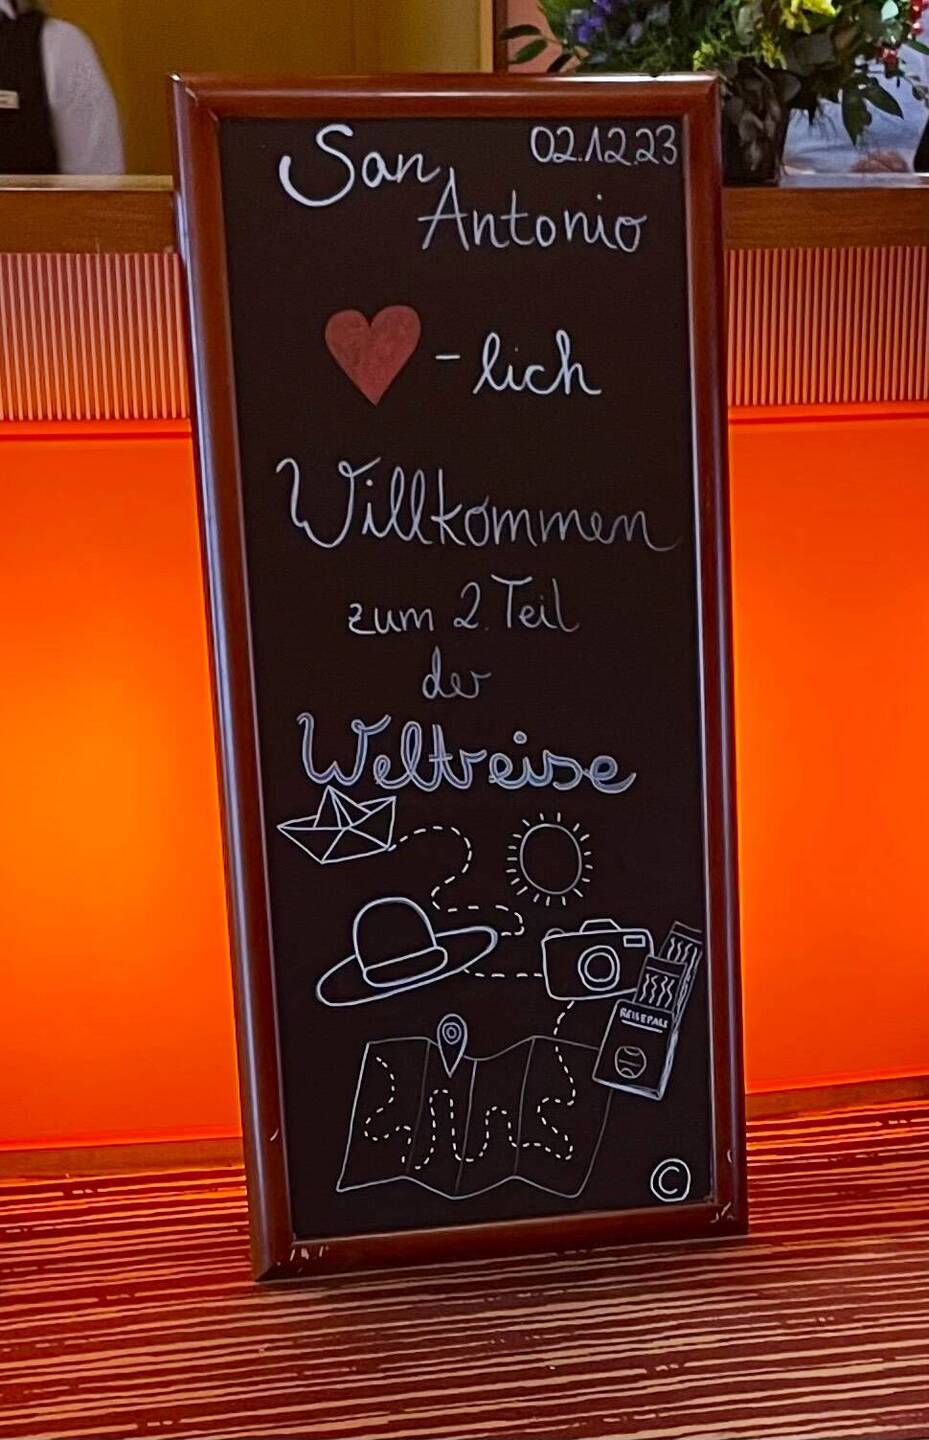 San 02.12.23
Antonio
-lich
Willkommen
zum 2. Teil
der
Weltreise
REISEPASS
©